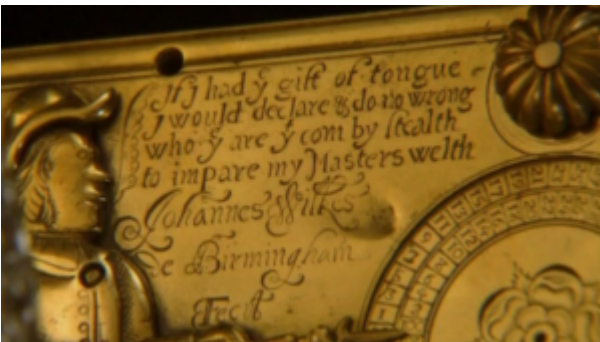 If j had ẏ gift of tongue
J would declare & do no wrong
who ẏ are ẏ com by stealth
to impare my Masters welth
Johannes Wilkes
De Birmingham
Fecit